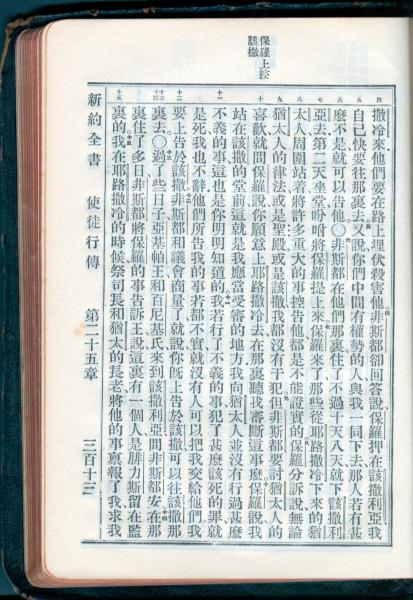 保羅上控
該撒
四 五 六 七 八 九 十 十一 十二 十三 十四 十五
撒冷來他們要在路上埋伏殺害他非斯都卻回答說保羅押在該撒利亞我
自己快要往那裏去又說你們中間有權勢的人與我一同下去那人若有甚
麼不是就可以告他○非斯都在他們那裏住了不過十天八天就下該撒利
亞去第二天坐堂吩咐將保羅提上來保羅來了那些從耶路撒冷下來的猶
太人周圍站着將許多重大的事控告他都是不能證實的保羅分訴說無論
猶太人的律法或是聖殿或是該撒我都沒有干犯但非斯都要討猶太人的
喜歡就問保羅說你願意上耶路撒冷去在那裏聽我審斷這事麼保羅說我
站在該撒的堂前這就是我應當受審的地方我向猶太人並沒有行過甚麼
不義的事這也是你明明知道的我若行了不義的事犯了甚麼該死的罪就
是死我也不辭他們所告我的事若都不實就沒有人可以把我交給他們我
要上告於該撒非斯都和議會商量了就說你旣上告於該撒可以往該撒那
裏去○過了些日子亞基帕王和百尼基氏來到該撒利亞問非斯都安在那
裏住了多日非斯都將保羅的事告訴王說這裏有一個人是腓力斯留在監
裏的我在耶路撒冷的時候祭司長和猶太的長老將他的事禀報了我求我
新約全書 使徒行傳 第二十五章 三百十三